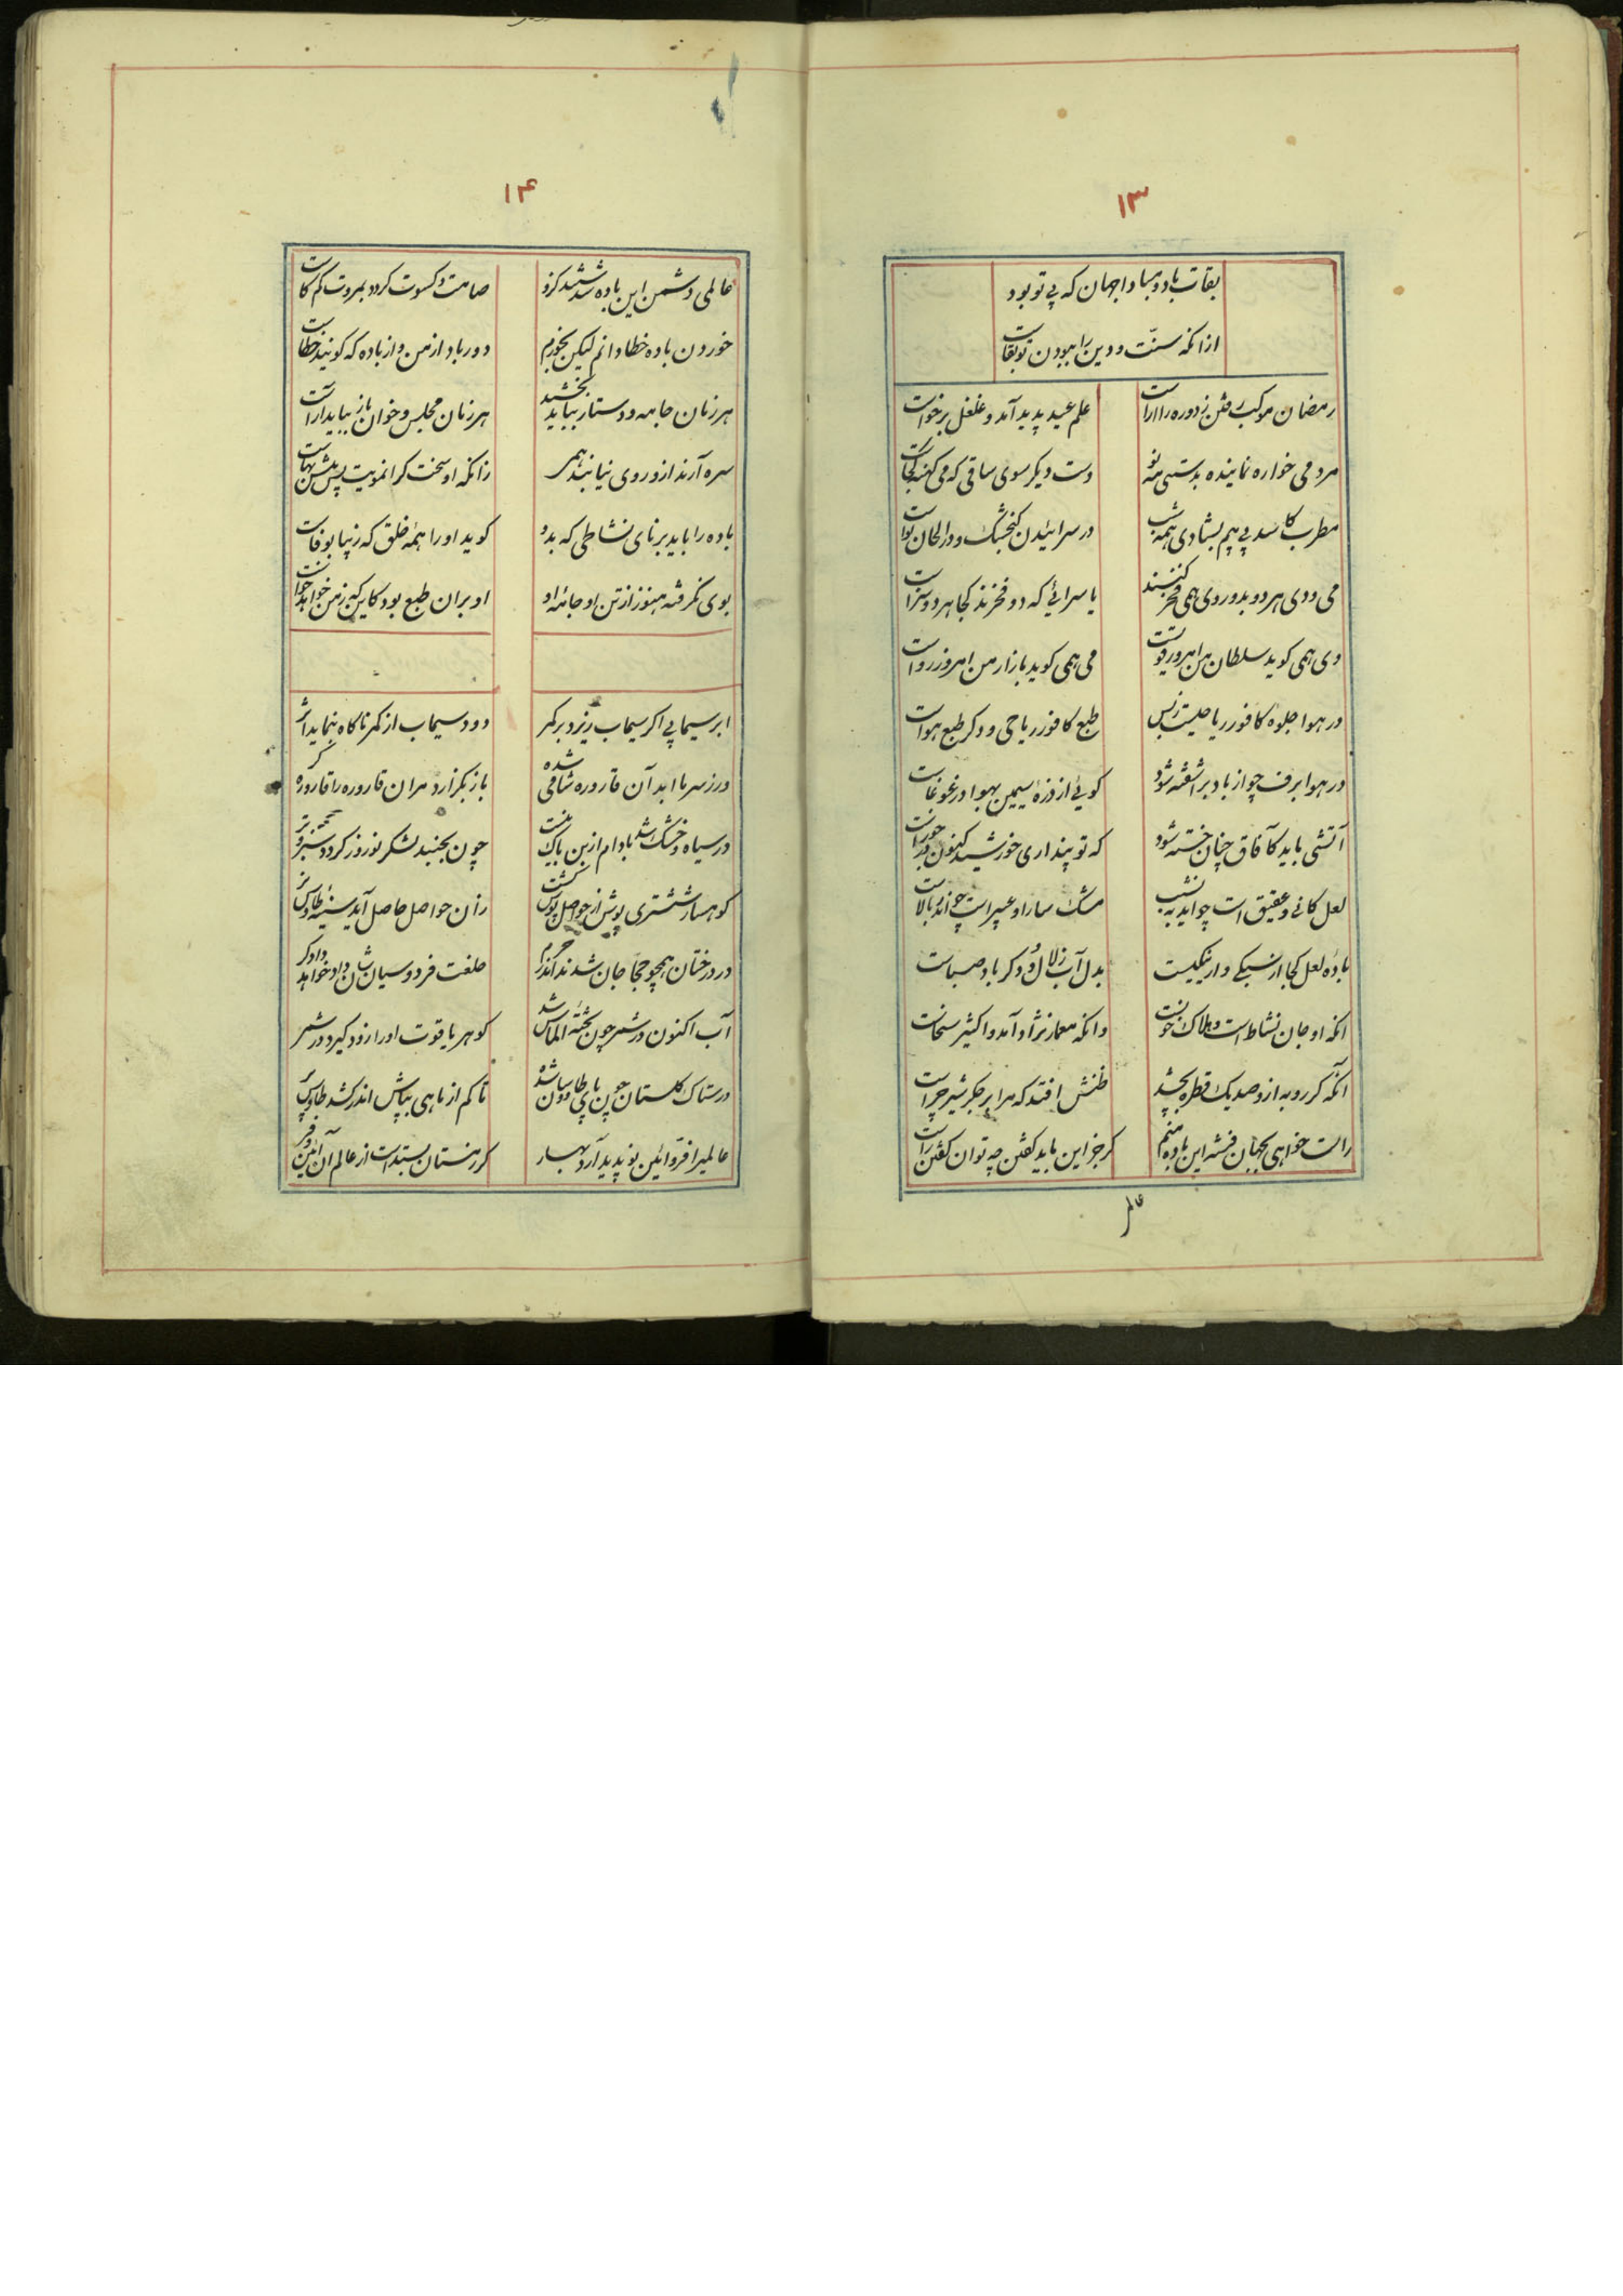 ۱۳
بقات باد و مباد اجهان که بی تو بود
از انکه سنّت و دین را ببودن تو بقاست
رمضان موکب رفتن زدوره راراست
علم عید پدید آمد و غلغل برخواست
مرد می خواره نماینده بدستی مه نو
دست دیکر سوی ساقی که می کهنه کجاست
مطرب کاسد بی بیم بشادی همه شب
در سرائیدن کنجشک و در الحان نواست
می و دی هر دو بدو روی همی فخر کنند
یا سرائی که دو فخرند کجا هر دو سزاست
دی همی کوید سلطان من امروز قویست
می همی کوید بازار من امروز رواست
در هوا جلوه کافور ریاحیست ز بس
طبع کافور ریاحی و دکر طبع هواست
در هوا برف چو از باد بر اشفته شود
کوئی از ذرهٔ سیمین بهوا در غوغاست
آتشی باید کآفاق چنان خسته شود
که تو پنداری خورشید کنون در جوزاست
لعل کانی و عقیق است چو اید به نشیب
مشک سارا و عبیر است چو اندر بالاست
بادهٔ لعل کجا از سبکی و از نیکیست
بدل آب زلال و دکر باد صباست
انکه او جان نشاط است و هلاک حزنست
وانکه معمار نژاد آمد و اکثیر سخاست
آنکه کر روبه ازو صد یک قطره بچشد
ظنش افتد که مرا بر جکر شیر چراست
راست خواهی بجهان فتنه این باده منم
کر جز این باید کفتن چه توان کفتن راست
عالمی
۱۴
عالمی دشمن این باده شدستند کزو
صامت و کسوت کردد بمروت کم کاست
خوردن باده خطا دانم لیکن بخورم
دور باد از من و از باده که کویند خطاست
هر زمان جامه و دستار بباید بخشید
هر زمان مجلس و خوان باز بباید آراست
سره آرند ازو روی نیابند همی
زانکه او سخت کرانمویت پس بیش بهاست
باده را باید برنای نشاطی که بدو
کوید اورا همه خلق که زیبا بوفاست
بوی نکرفته هنوز از تن او جامهٔ او
او بران طبع بود کاین که ز من خواهد خواست
ابر سیمابی اکر سیماب ریزد بر کمر
دود سیماب از کمر ناکاه بنماید اثر
ورز سرما ابدآن قاروره شافی شده
باز بکزارد مران قاروره را قاروره کر
در سیاه و خشک شد بادام ازین باک نیست
چون بجنبد لشکر نوروز کردد سبز و تر
کوهسار ششتری پوش از حواصل پوش کشت
زان حواصل حاصل آید سینهٔ طاوس نر
در درختان همچو حجاجان شدند اندر حرم
خلعت فردوسیان شان داد خواهد دادکر
آب اکنون در شمر چون تختهٔ الماس شد
کوهر یاقوت اورا زود کیرد در شمر
در ستاک کلستان چون پای طاوسان شده
تا کم از ماهی بپاش اندر کشد طاوس پر
عالمیرا فرّ و ائین نو پدید آرد بهار
کر زمستان بستدست از عالم آن ائین و فر